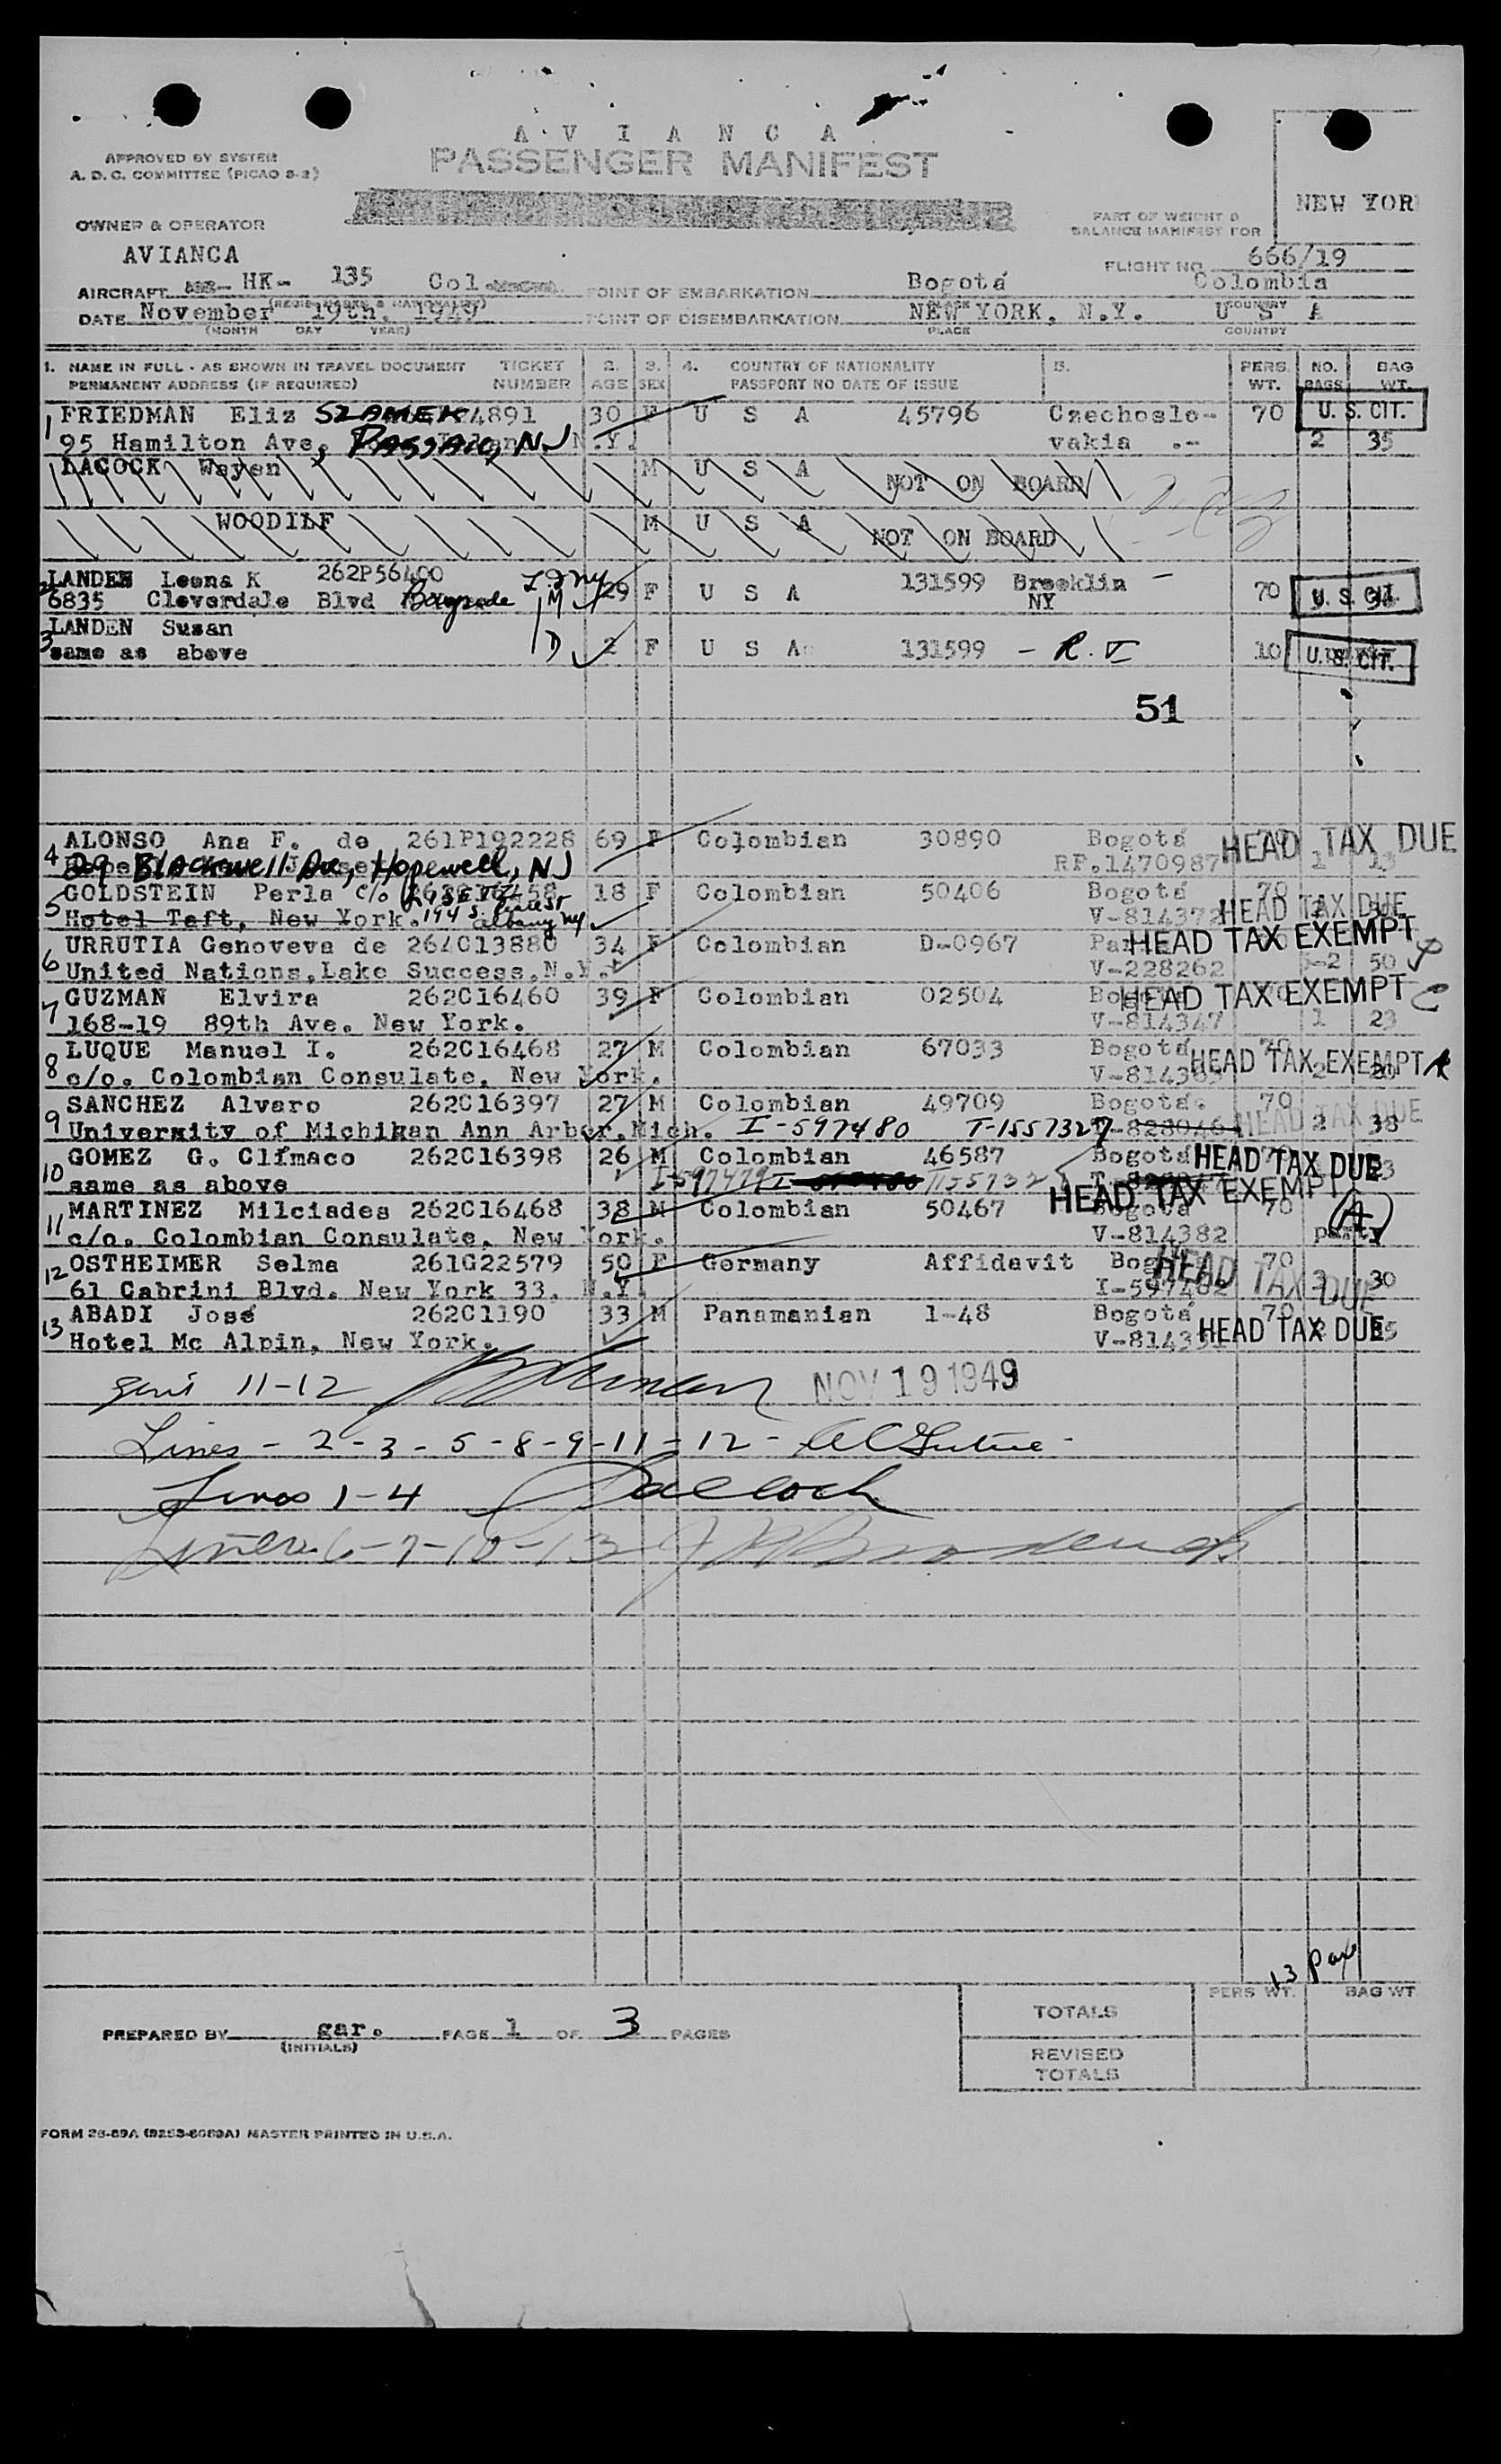 A V I A N C A
PASSENGER MANIFEST
APPROVED BY SYSTEM
A. D. C. COMMITTEE (PICAO S-2)
NEW YOR
OWNER & OPERATOR
PART OF WEIGHT &
BALANCE MANIFEST FOR
AVIANCA
FLIGHT NO. 666/19
AIRCRAFT HK- 135 Col POINT OF EMBARKATION Bogotá Colombia
DATE November 19th, 1949 POINT OF DISEMBARKATION NEW YORK, N.Y. U S A
(MONTH DAY YEAR) PLACE COUNTRY
1. NAME IN FULL - AS SHOWN IN TRAVEL DOCUMENT TICKET 2. 3. 4. COUNTRY OF NATIONALITY 5. PERS. NO. BAG
PERMANENT ADDRESS (IF REQUIRED) NUMBER AGE SEX PASSPORT NO DATE OF ISSUE WT. BAGS WT.
1 FRIEDMAN Eliz SZAMEK 4891 30 F U S A 45796 Czechoslo- 70 U. S. CIT.
95 Hamilton Ave, PASSAIC, NJ N.Y. vakia .- 2 35
LACOCK Wayen M U S A NOT ON BOARD
WOODILF M U S A NOT ON BOARD
2 LANDEN Leona K 262P56400 29 F U S A 131599 Brooklin - 70 U. S. CIT.
6835 Cloverdale Blvd Bayside NY
3 LANDEN Susan
same as above 2 F U S A 131599 - R. I 10 U. S. CIT.
51
4 ALONSO Ana F. de 261P192228 69 F Colombian 30890 Bogotá HEAD TAX DUE
29 Blackwell Ave, Hopewell, NJ RP.1470987 1 13
5 GOLDSTEIN Perla c/o 18 F Colombian 50406 Bogotá 70
Hotel Taft, New York. 194 S. Albany NY V-814372 HEAD TAX DUE
6 URRUTIA Genoveva de 264C13880 34 F Colombian D-0967 HEAD TAX EXEMPT
United Nations, Lake Success, N.Y. V-228262 50
7 GUZMAN Elvira 262C16460 39 F Colombian 02504 HEAD TAX EXEMPT
168-19 89th Ave. New York. V-814347 1 23
8 LUQUE Manuel I. 262C16468 27 M Colombian 67033 Bogotá 70
c/o. Colombian Consulate, New York. HEAD TAX EXEMPT
9 SANCHEZ Alvaro 262C16397 27 M Colombian 49709 Bogotá. 70
University of Michikan Ann Arbor, Mich. I-597480 T-1557327 HEAD TAX DUE 2 38
10 GOMEZ G. Clímaco 262C16398 26 M Colombian 46587 Bogotá HEAD TAX DUE
same as above I-597479 HEAD TAX EXEMPT
11 MARTINEZ Milciades 262C16468 38 M Colombian 50467 Bogotá 70
c/o. Colombian Consulate, New York. V-814382 (A)
12 OSTHEIMER Selma 261G22579 50 F Germany Affidavit 70
61 Cabrini Blvd. New York 33, N.Y. I-597482 HEAD TAX DUE 30
13 ABADI José 262C1190 33 M Panamanian 1-48 Bogotá 70
Hotel Mc Alpin, New York. HEAD TAX DUE
11-12 NOV 19 1949
Lines - 2-3-5-8-9-11-12-
Lines 1-4
Lines 6-7-10-13
13 Pax
PERS WT. BAG WT
TOTALS
PREPARED BY gar. PAGE 1 OF 3 PAGES
(INITIALS)
REVISED
TOTALS
FORM 28-89A (9253-6089A) MASTER PRINTED IN U.S.A.